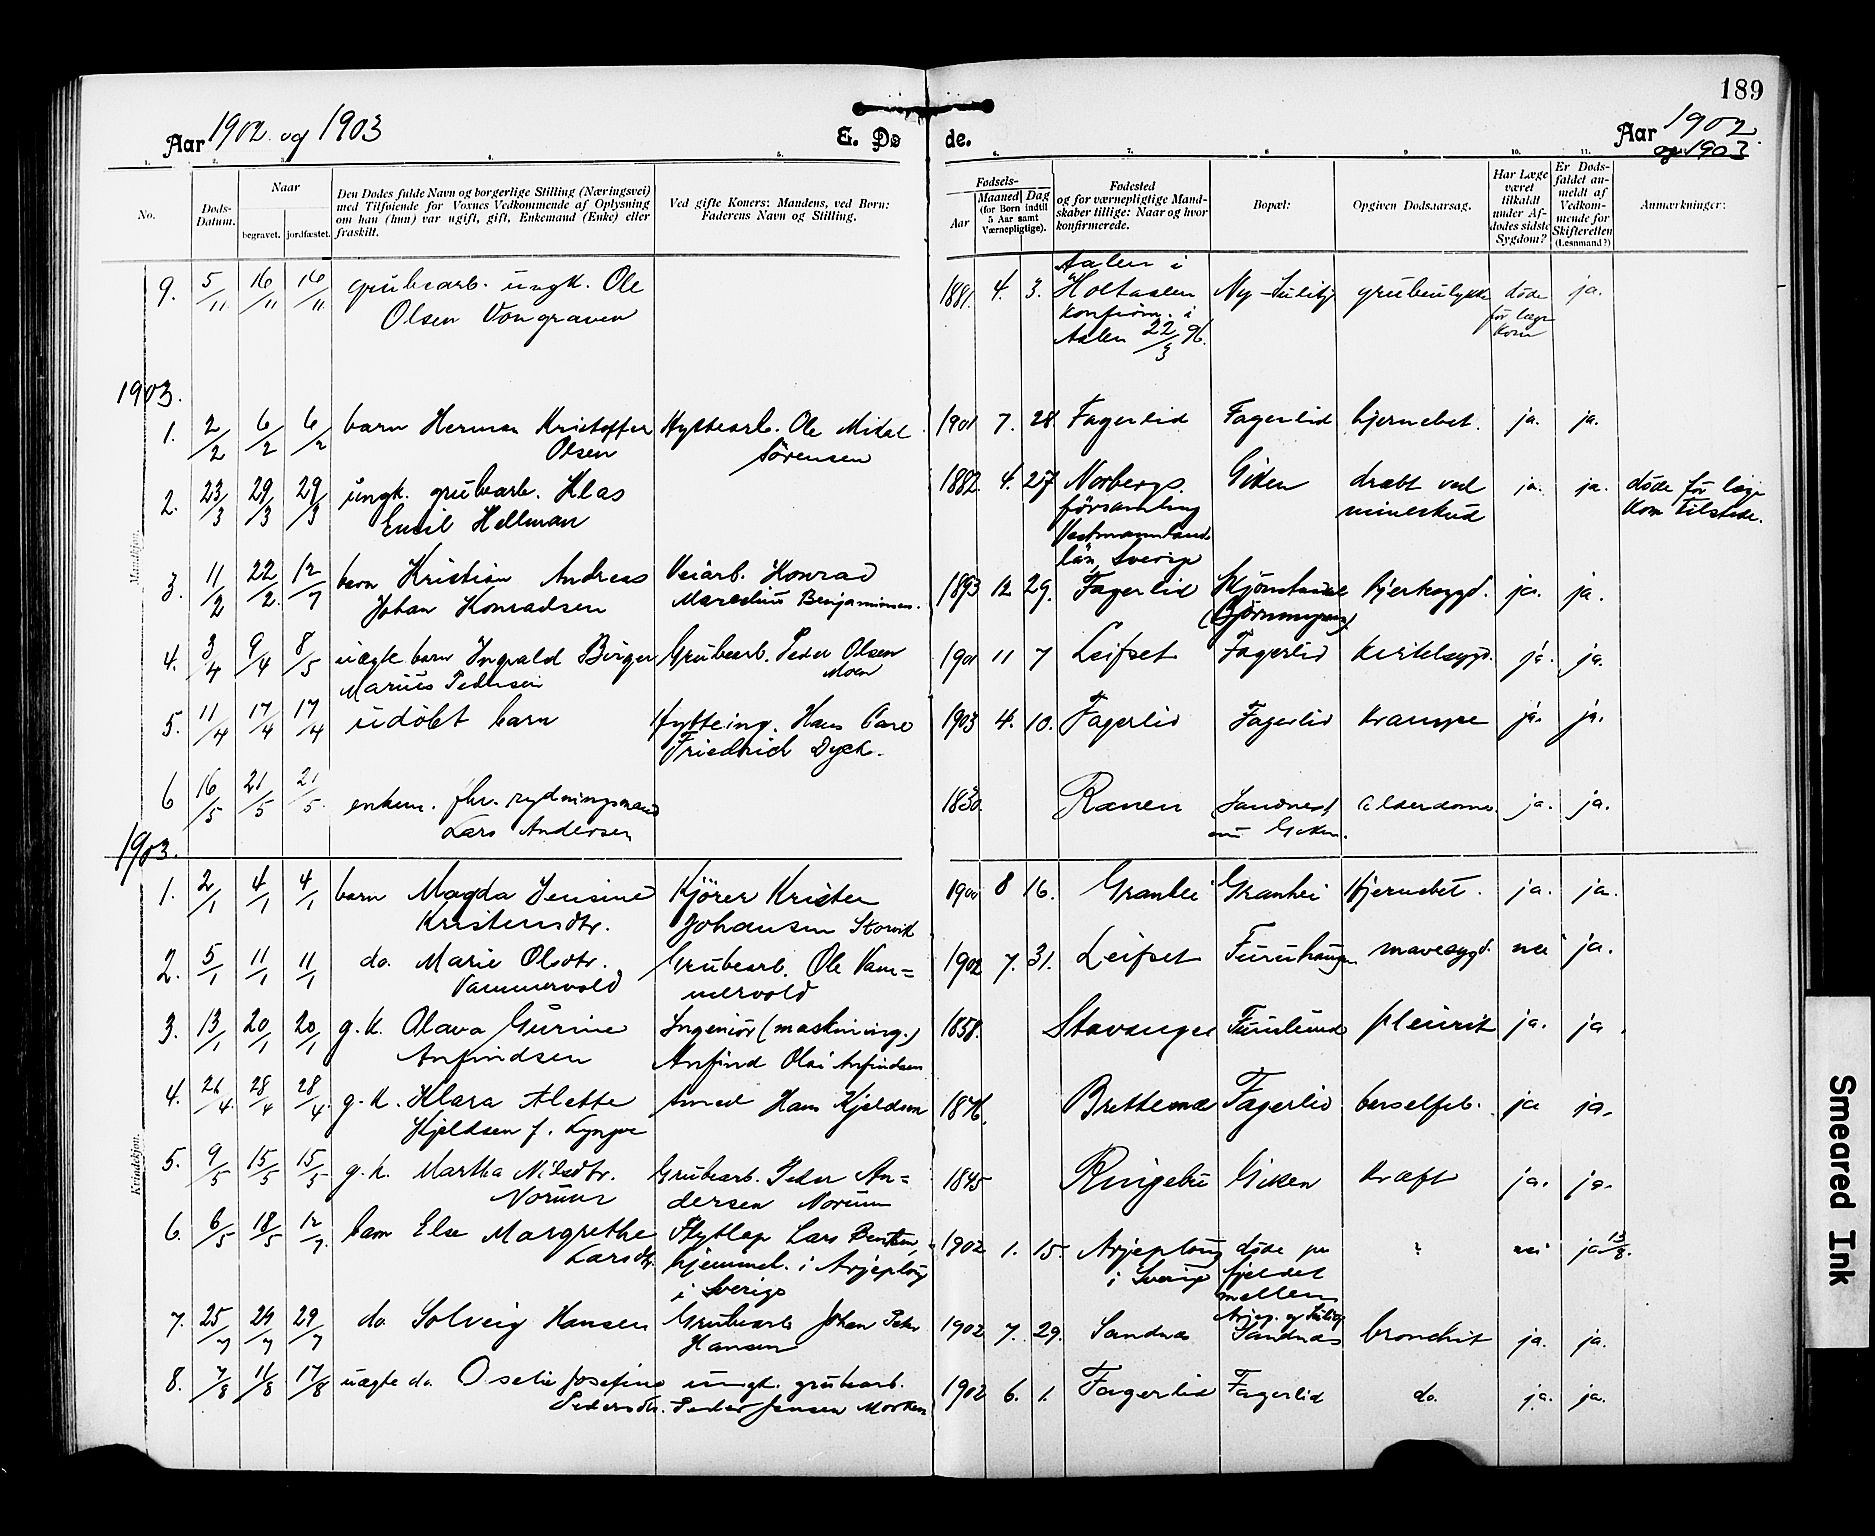 189
Aar 1902 og 1903
E. Dø
de.
Aar 1902
og 1903
1. 2. 3. 4. 5. 6. 7. 8. 9. 10. 11.
No.
Døds-
Datum.
Naar
begravet. jordfæstet.
Den Dødes fulde Navn og borgerlige Stilling (Næringsvei)
med Tilføiende for Voxnes Vedkommende af Oplysning
om han (hun) var ugift, gift, Enkemand (Enke) eller
fraskilt.
Ved gifte Koner: Mandens, ved Børn:
Faderens Navn og Stilling.
Fødsels-
Aar
Maaned Dag
(for Børn indtil
5 Aar samt
Værnepligtige).
Fødested
og for værnepligtige Mand-
skaber tillige: Naar og hvor
konfirmerede.
Bopæl:
Opgiven Dødsaarsag.
Har Læge
været
tilkaldt
under Af-
dødes sidste
Sygdom?
Er Døds-
faldet an-
meldt af
Vedkom-
mende for
Skifteretten
(Lensmand?)
Anmærkninger:
Mandkjøn.
9. 5/11 16/11 16/11 grubearb. ungk. Ole
Olsen Vongraven
1881. 4. 3. Aalen i
Holtaalen
konfirm. i
Aalen 22/3 96.
Ny-Sulitj grubeulykke døde
før læge
kom
ja.
1903.
1. 2/2 6/2 6/2 barn Herman Kristoffer
Olsen
Hyttearb. Ole Mikal
Sörensen
1901 7. 28 Fagerlid Fagerlid hjernebet. ja. ja.
2. 23/3 29/3 29/3 ungk. grubearb. Klas
Emil Hellman
1882. 4. 27 Norbergs
församling
Vestmannlands
län, Sverige
Giken dræbt ved
mineskud
ja. ja. døde før læge
kom tilstede.
3. 11/2 22/2. 12/7 barn Kristian Andreas
Johan Konradsen
Veiarb. Konrad
Marcelius Benjaminsen.
1893 12 29. Fagerlid Skjönstadal
(Björnmyren)
hjertesygd. ja. ja.
4. 3/4 9/4 8/5 uægte barn Ingvald Birger
Marius Pedersen
Grubearb. Peder Olsen
Moen
1901 11 7 Leifset Fagerlid kirtelsygd. ja. ja.
5. 11/4 17/4 17/4 udöbt barn
Hytteing. Hans Carl
Friedrich Dyck.
1903 4. 10. Fagerlid Fagerlid krampe ja. ja.
6 16/5 21/5 21/5. enkem. fhv. rydningsmand
Lars Andersen
1830. Ranen Sandnes
nu Giken.
Alderdoms. ja. ja.
1903.
Kvindekjøn.
1. 2/1 4/1 4/1 barn Magda Jensine
Kristensdtr.
Kjörer Kristen
Johansen Storvik
1900 8 16. Granhei Granhei Hjernebet. ja. ja.
2. 5/1 11/1 11/1 do. Marie Olsdtr.
Vammervold
Grubearb. Ole Vam=
mervold
1902 7. 31. Leifset Furuhaugen mavesygd. nei ja.
3. 13/1 20/1 20/1 g.k. Olava Gurine
Anfindsen
Ingeniör (maskining.)
Anfind Olai Anfindsen
1858. Stavanger Furulund pleurit ja. ja.
4. 26/4. 28/4 28/4. g.k. Klara Alette
Kjeldsen f. Lyngve
Smed Hans Kjeldsen
1876. Brettesnæs Fagerlid barselfeb. ja ja.
5. 9/5 15/5 15/5 g.k. Martha Nilsdtr.
Norum
Grubearb. Peder An=
dersen Norum
1845 Ringebu Giken kræft ja. ja.
6. 6/5 18/5 12/7. barn Else Margrethe
Larsdtr.
Flytlap Lars Bentsen,
hjemmeh. i Arjeploug
i Sverige
1902 1. 15. Arjeploug
i Sverige
døde paa
fjeldet
mellem
Arjep. og Sulitj.
? nei ja 13/8.
7. 25/7 29/7 29/7 do Solveig Hansen
Grubearb Johan Peder
Hansen
1902 7. 29. Sandnæs Sandnæs bronchit ja. ja.
8. 7/8 11/8 17/8 uægte do. Oselie Josefine
Pedersdtr.
ungk. grubearb.
Peder Jensen Morken
1902 6. 1. Fagerlid Fagerlid do. ja. ja.
Smeared Ink